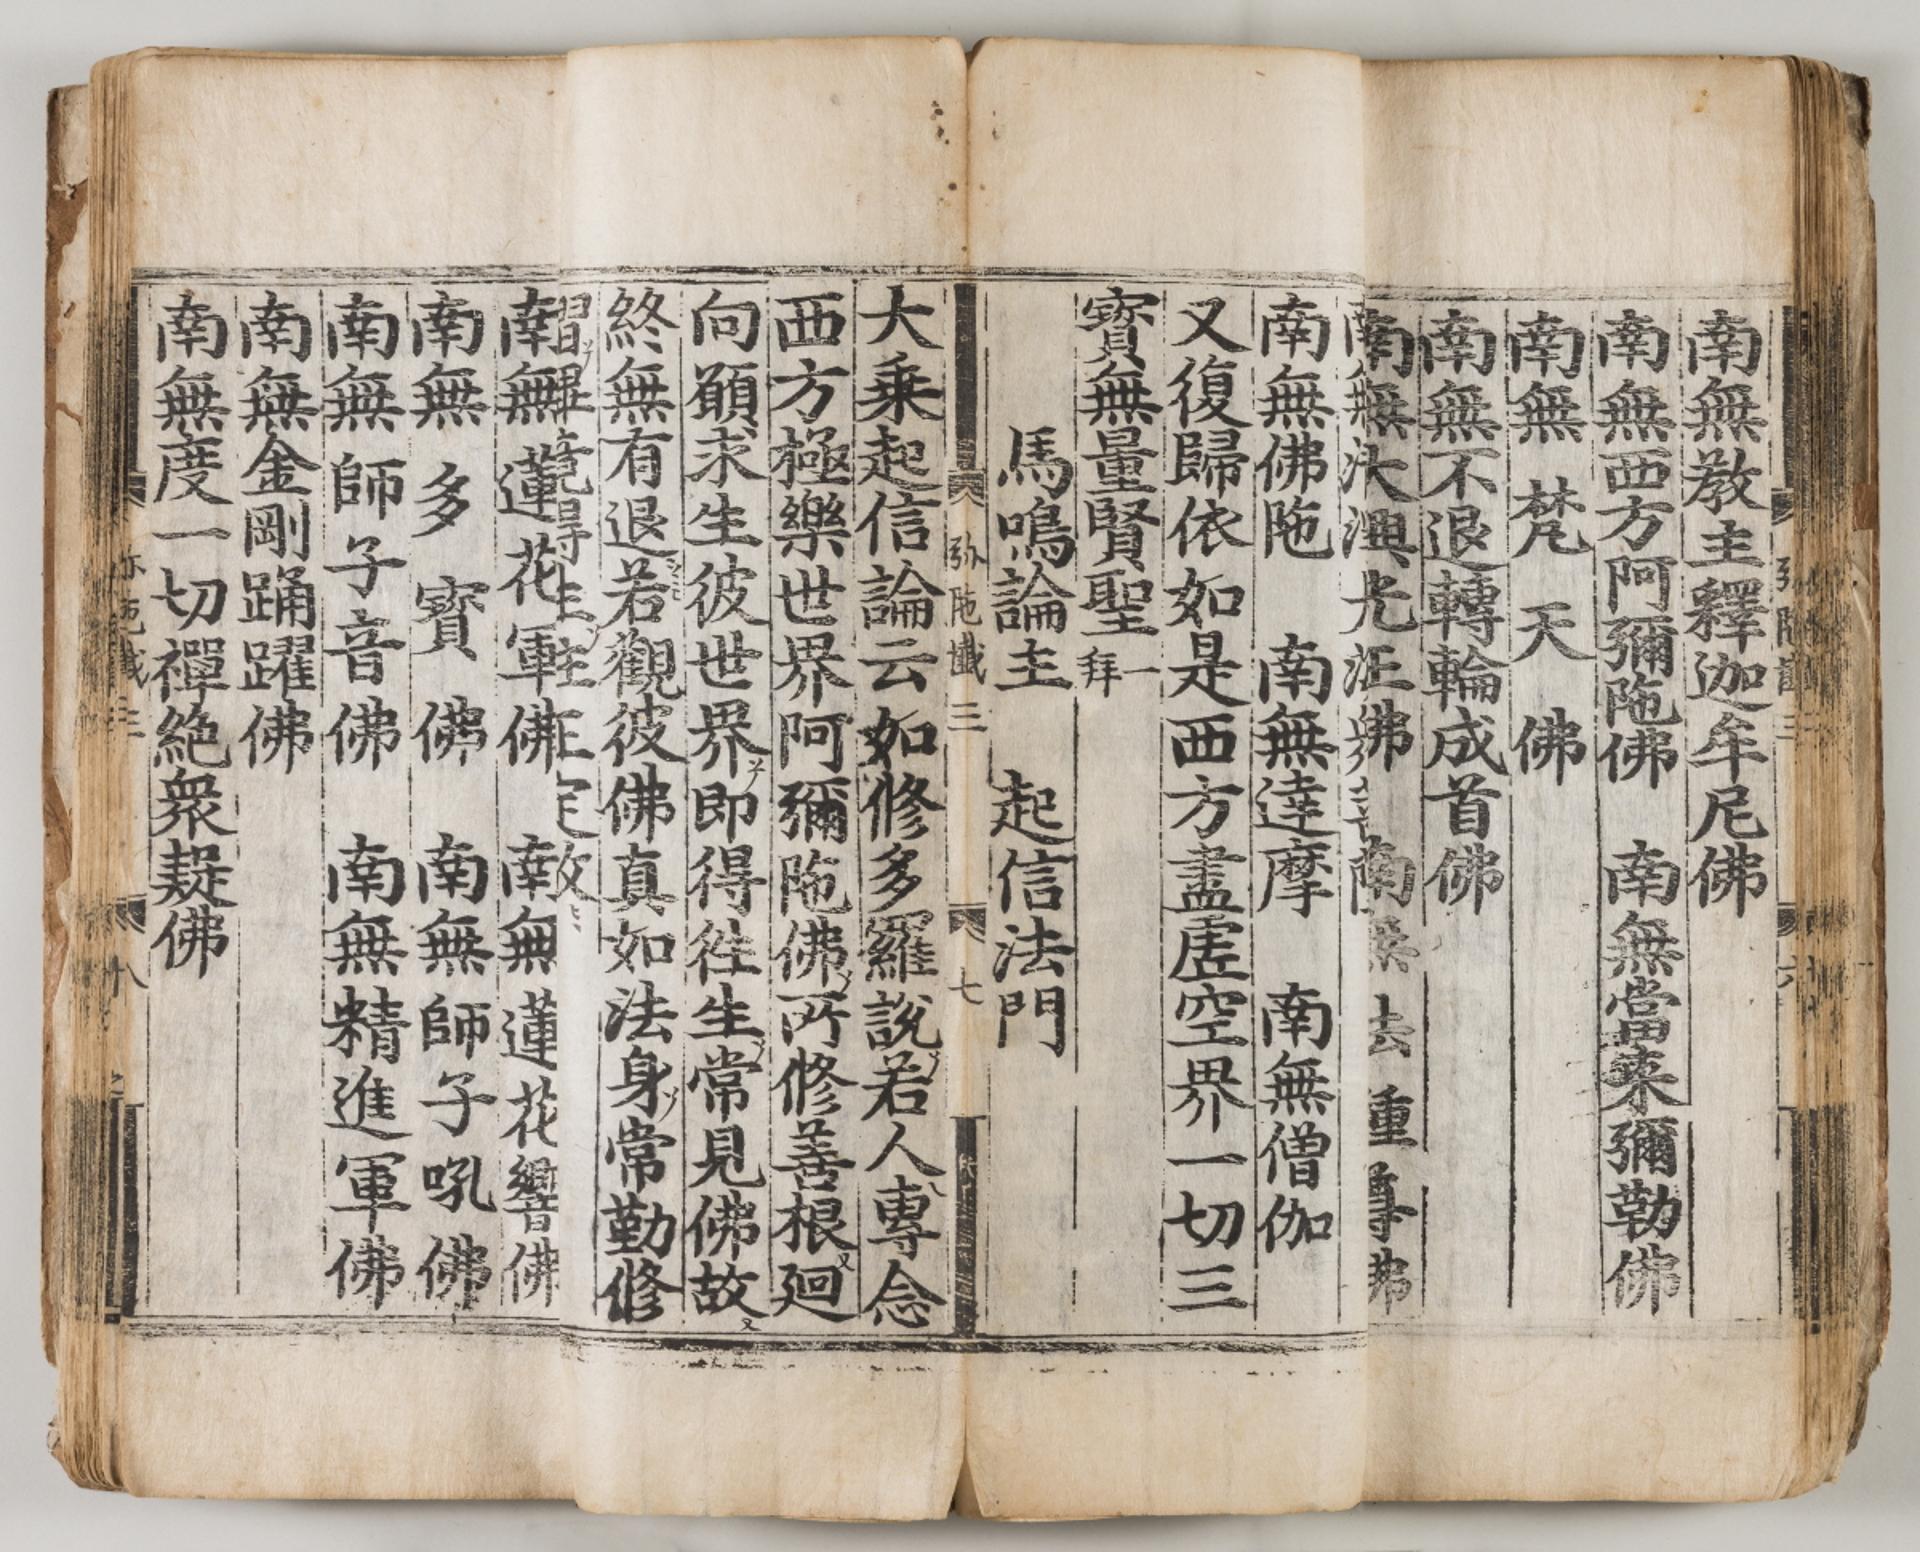 南無教主釋迦牟尼佛
南無西方阿彌陁佛 南無當來彌勒佛
南無梵天佛
南無不退轉輪成首佛
南無大興光王佛
南無佛陁 南無達摩 南無僧伽
又復歸依如是西方盡虛空界一切三
寶無量賢聖 一拜
馬鳴論主 起信法門
弥陁懺 三 七
大乗起信論云如修多羅說若人專念
西方極樂世界阿彌陁佛所修善根廻
向願求生彼世界即得徃生常見佛故
終無有退若觀彼佛真如法身常勤修
南無蓮花軍佛 南無蓮花響佛
南無多寶佛 南無師子吼佛
南無師子音佛 南無精進軍佛
南無金剛踊躍佛
南無度一切禪絶衆疑佛